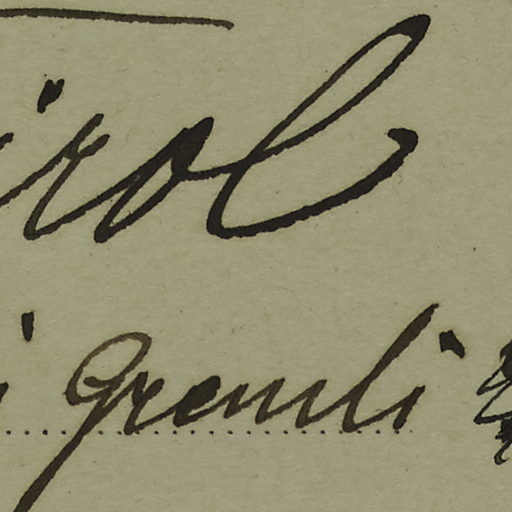 irol
i Gremli